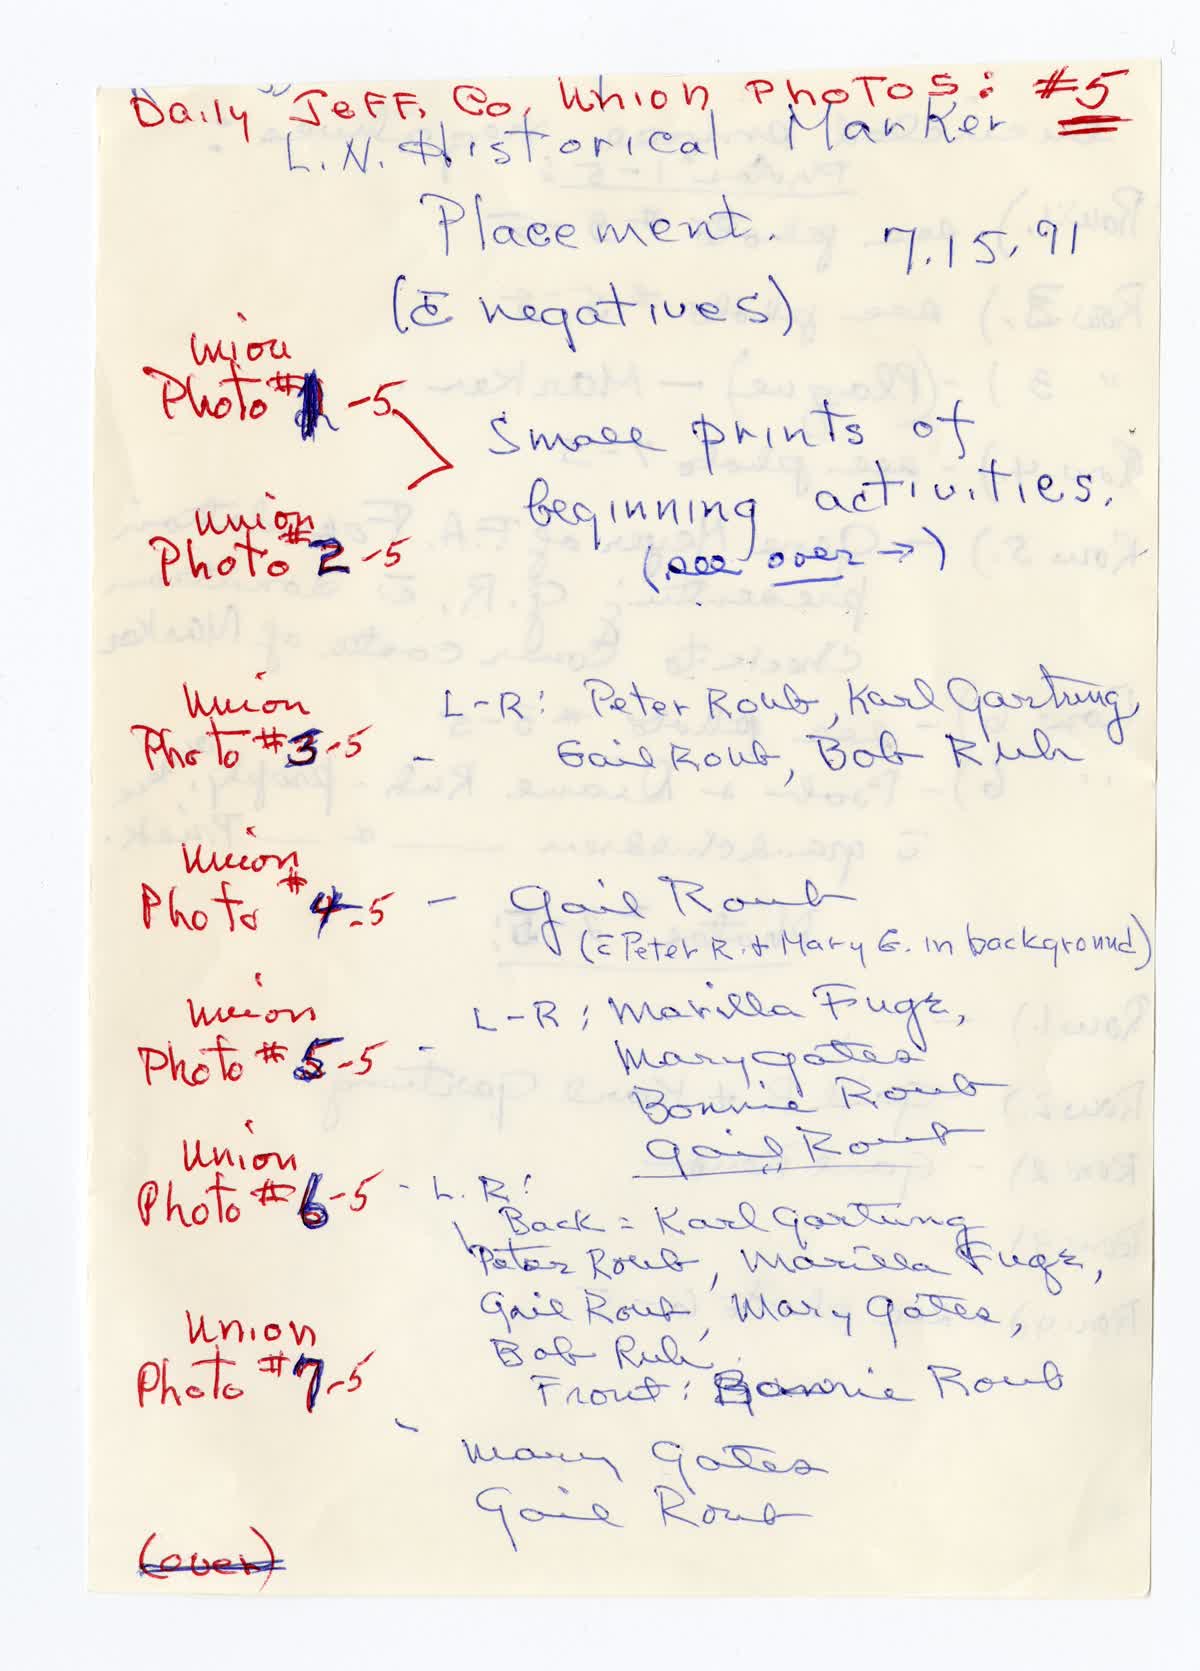 Daily Jeff. Co. Union Photos: #5
L.N. Historical Marker
Placement. 7.15.91
(c̄ negatives)
Union
Photo #1-5
Small prints of
beginning activities.
(see over →)
Union
Photo #2-5
Union
Photo #3-5 - L-R: Peter Roub, Karl Gartung,
Gail Roub, Bob Ruh
Union
Photo #4-5 - Gail Roub
(c̄ Peter R. + Mary G. in background)
Union
Photo #5-5 - L-R: Marilla Fuge,
Mary Gates
Bonnie Roub
Gail Roub
Union
Photo #6-5 - L.R:
Back = Karl Gartung
Peter Roub, Marilla Fuge,
Gail Roub, Mary Gates,
Bob Ruh
Front: Bonnie Roub
Union
Photo #7-5 -
Mary Gates
Gail Roub
(over)